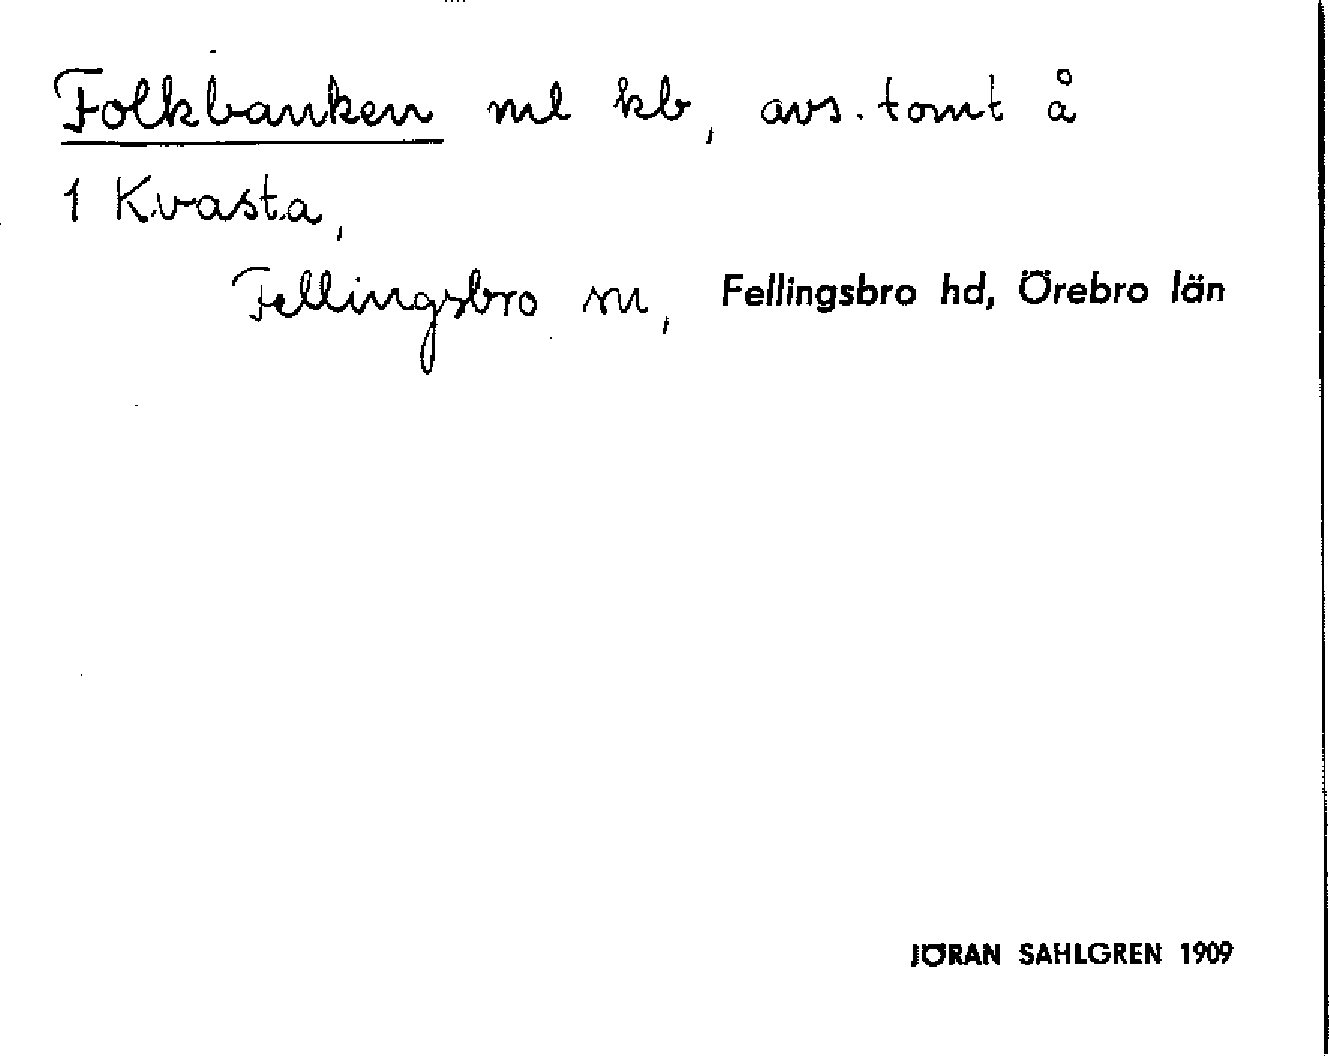 Folkbanken ml kb, avs. tomt å
1 Kvasta,
Fellingsbro sn, Fellingsbro hd, Örebro län
JÖRAN SAHLGREN 1909